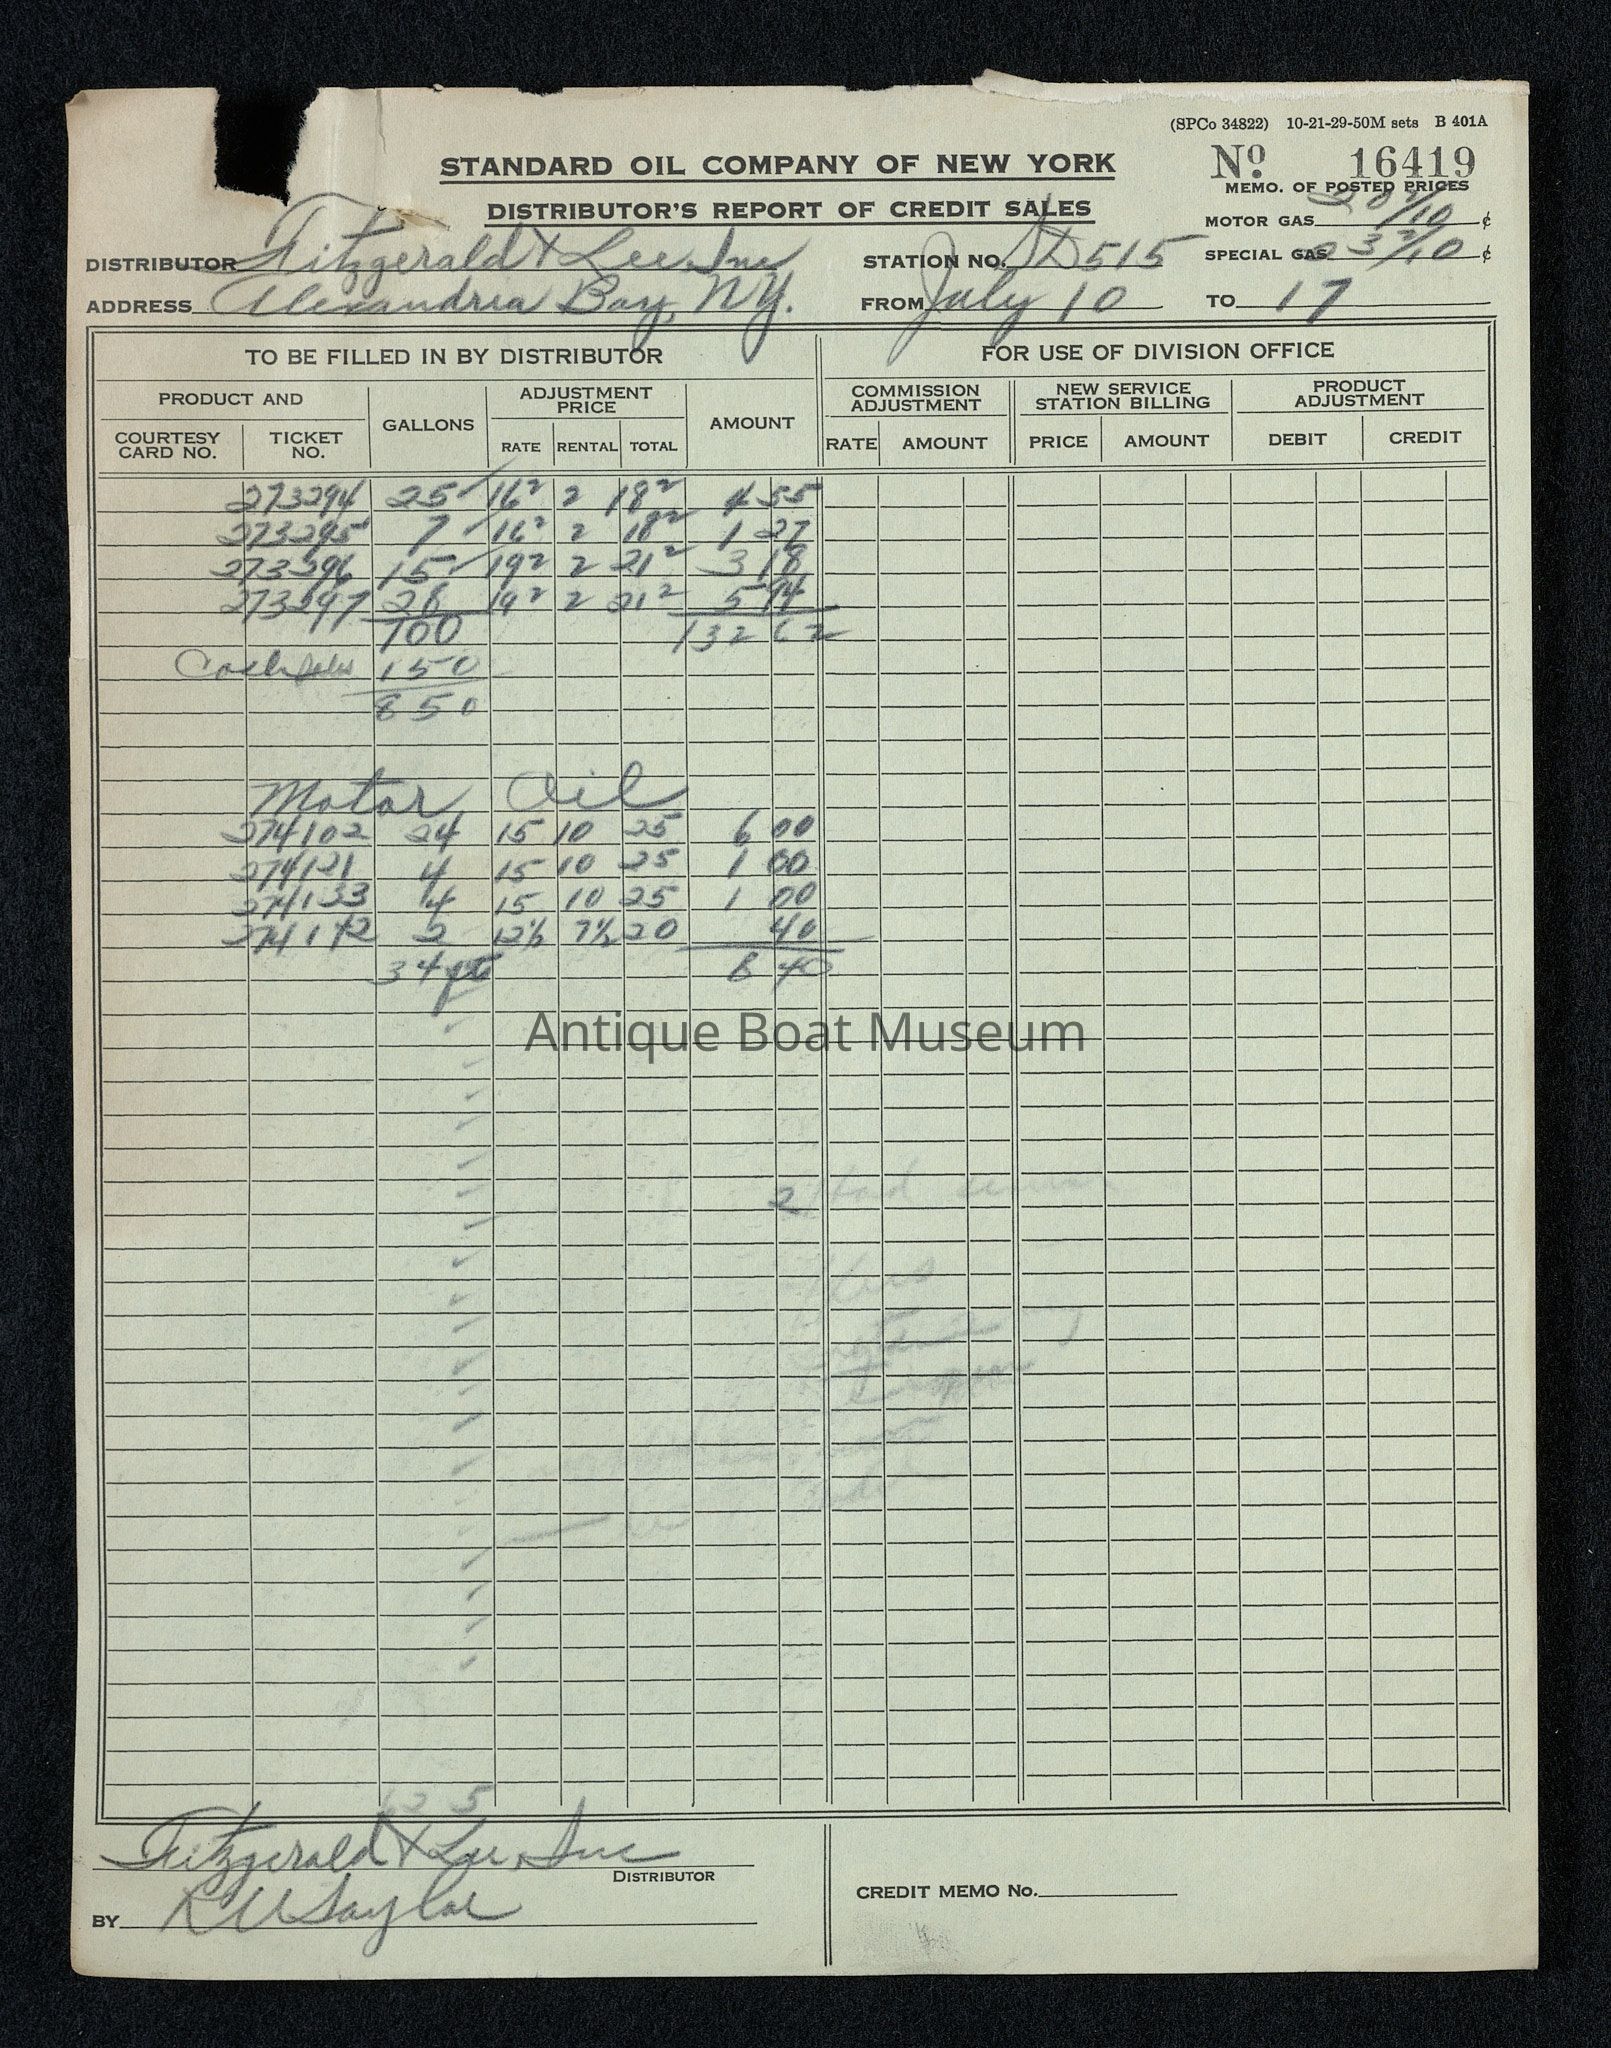 (SPCo 34822) 10-21-29-50M sets B 401A
STANDARD OIL COMPANY OF NEW YORK
No. 16419
DISTRIBUTOR'S REPORT OF CREDIT SALES
MEMO. OF POSTED PRICES
MOTOR GAS 20 2/10 ¢
DISTRIBUTOR Fitzgerald & Lee, Inc
STATION NO. 515
SPECIAL GAS 3 2/10 ¢
ADDRESS Alexandria Bay, N.Y.
FROM July 10 TO 17
TO BE FILLED IN BY DISTRIBUTOR
FOR USE OF DIVISION OFFICE
PRODUCT AND
COURTESY CARD NO. TICKET NO. GALLONS ADJUSTMENT PRICE RATE RENTAL TOTAL AMOUNT
COMMISSION ADJUSTMENT RATE AMOUNT
NEW SERVICE STATION BILLING PRICE AMOUNT
PRODUCT ADJUSTMENT DEBIT CREDIT
273294 25 16² 2 18² 4 55
273295 7 16² 2 18² 1 27
273296 15 19² 2 21² 3 18
273297 28 19² 2 21² 5 94
700 132 62
Cash Sales 150
850
Motor Oil
274102 24 15 10 25 6 00
274121 4 15 10 25 1 00
274133 4 15 10 25 1 00
274142 2 12½ 7½ 20 40
34 pts 8 40
Antique Boat Museum
2
Fitzgerald & Lee, Inc
DISTRIBUTOR
CREDIT MEMO No.
BY Taylor